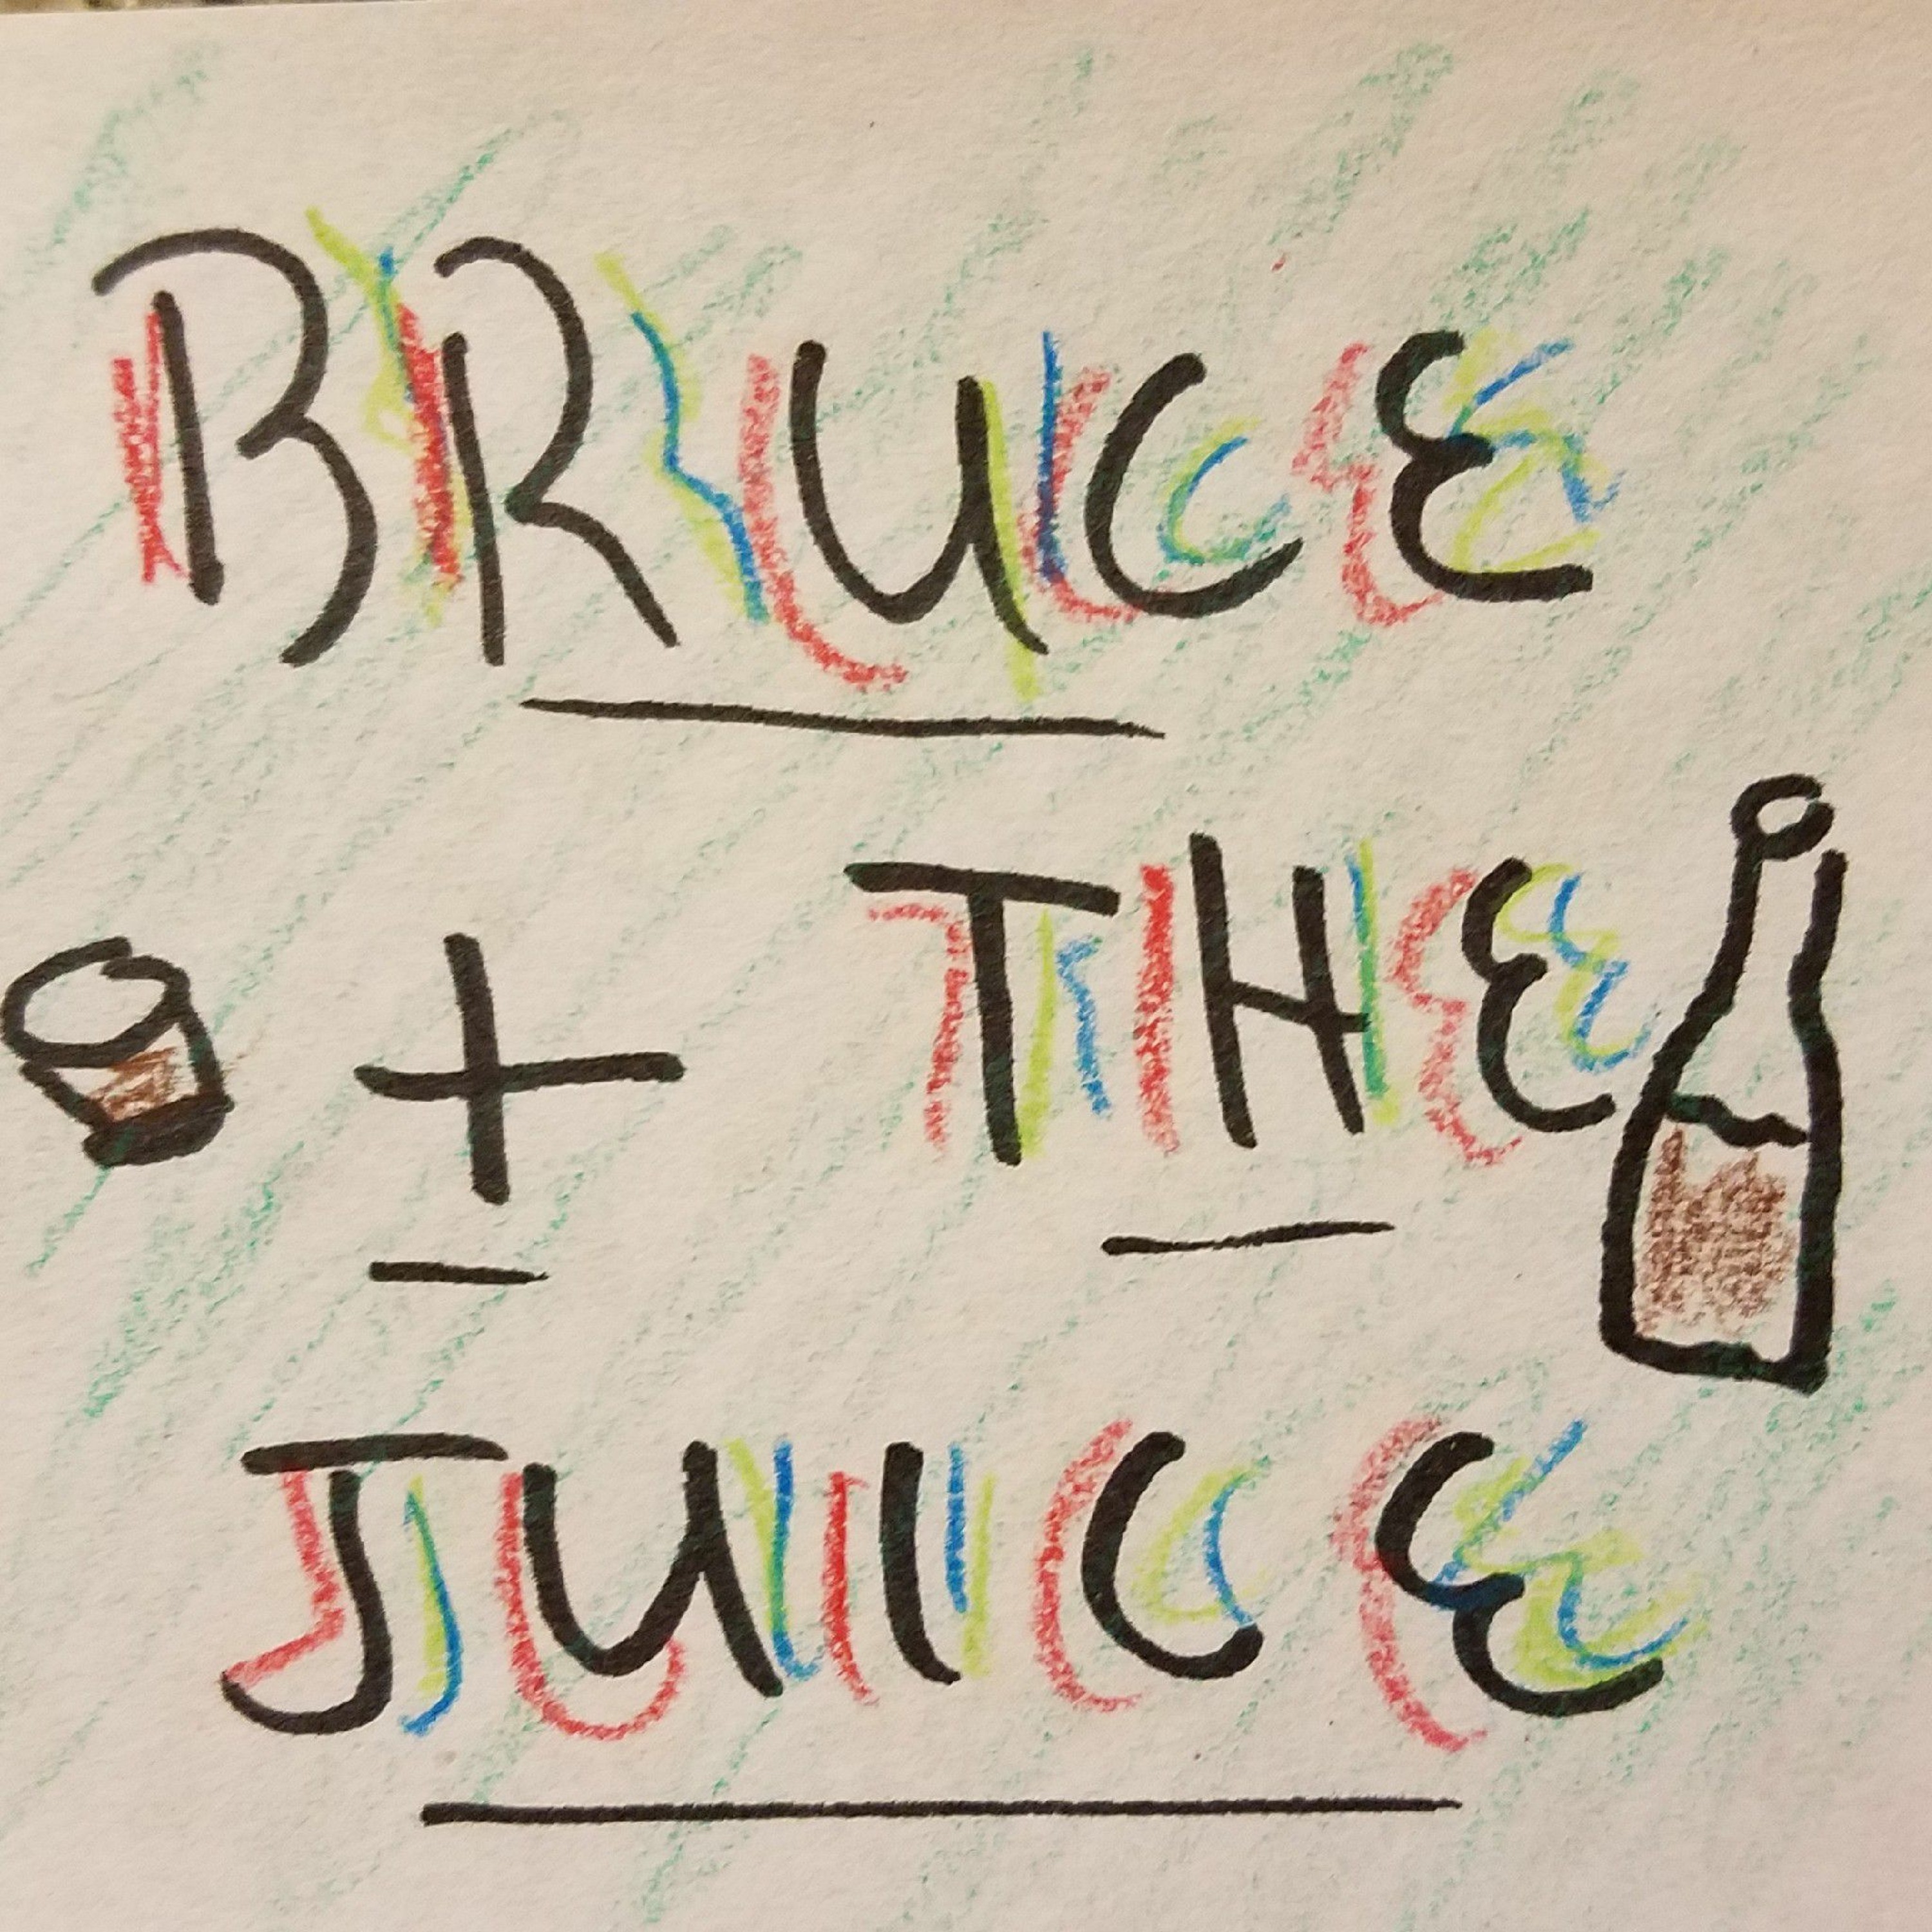 BRUCE
+ THE
JUICE